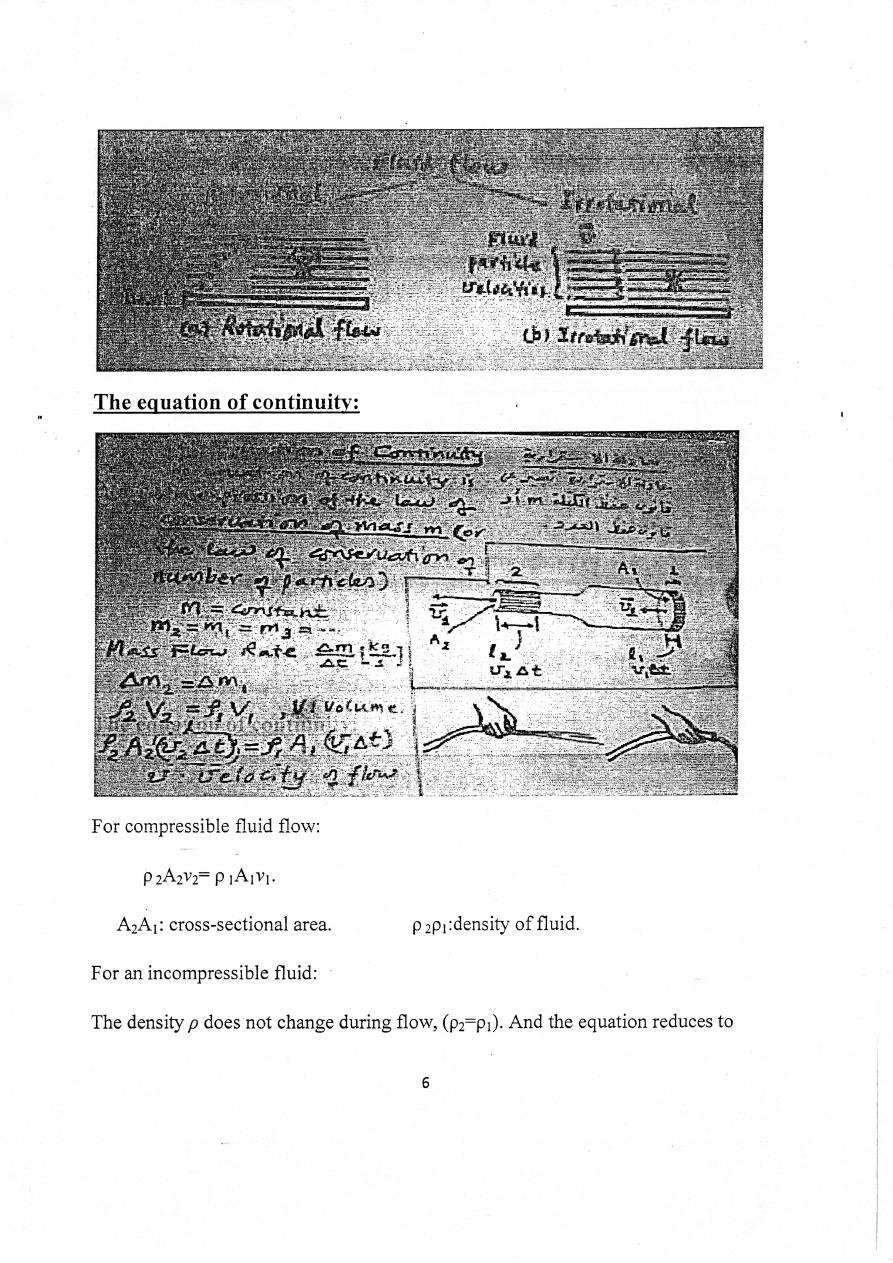 Fluid flow
Irrotational
Fluid
particle
velocities
(a) Rotational flow
(b) Irrotational flow
The equation of continuity:
of Continuity
of continuity is
of the law of
قانون حفظ الكتلة m أو
Conservation of mass m (or
the law of conservation of
number of particles)
2
A₁
1
m = constant
m₂ = m₁ = m₃ = ...
Mass Flow Rate Δm/Δt [kg/s]
A₂
l₂
l₁
v₂ Δt
v₁Δt
Δm₂ = Δm₁
ρ₂ V₂ = ρ₁ V₁ , V: Volume.
ρ₂ A₂(v₂ Δt) = ρ₁ A₁ (v₁Δt)
v - velocity of flow
For compressible fluid flow:
ρ ₂A₂v₂= ρ ₁A₁v₁.
A₂A₁: cross-sectional area. ρ ₂ρ₁:density of fluid.
For an incompressible fluid:
The density ρ does not change during flow, (ρ₂=ρ₁). And the equation reduces to
6